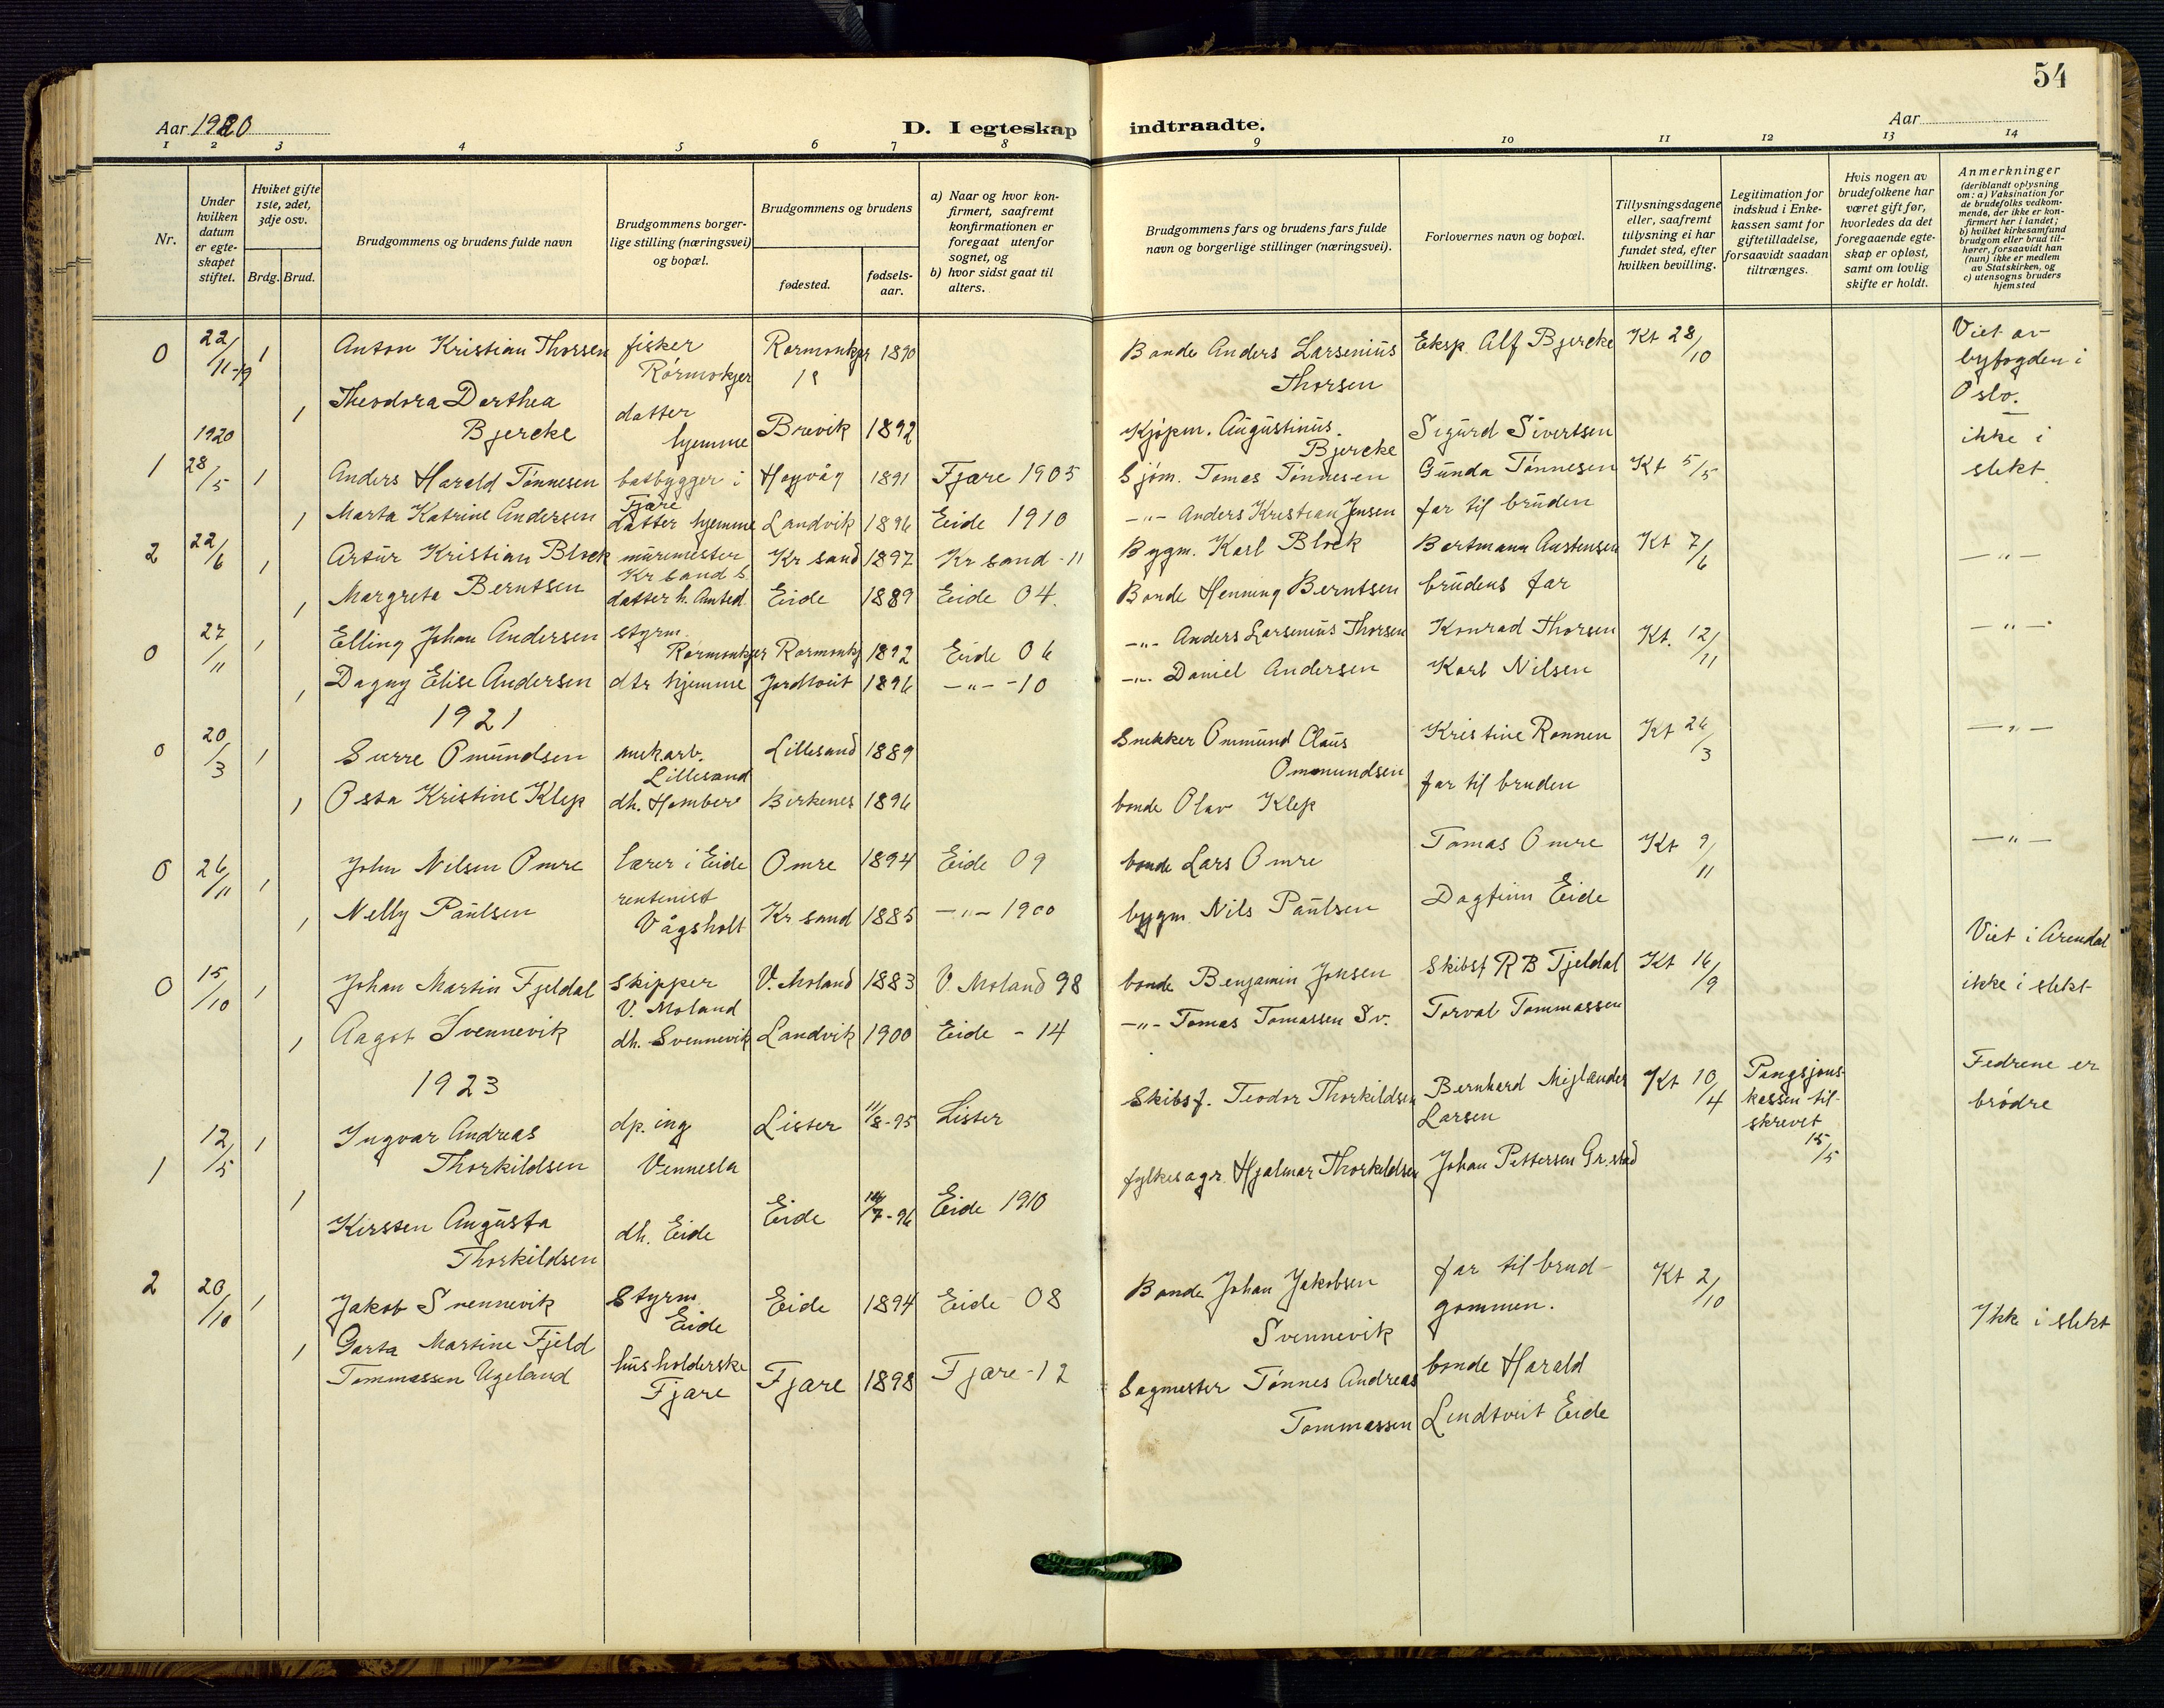 54
Aar 1920
D. I egteskap indtraadte.
Aar
1 2 3 4 5 6 7 8 9 10 11 12 13 14
Nr.
Under hvilken datum er egte-skapet stiftet.
Hviket gifte 1ste, 2det, 3dje osv.
Brdg. Brud.
Brudgommens og brudens fulde navn
Brudgommens borger-lige stilling (næringsvei) og bopæl.
Brudgommens og brudens
fødested.
fødsels-aar.
a) Naar og hvor kon-firmert, saafremt konfirmationen er foregaat utenfor sognet, og
b) hvor sidst gaat til alters.
Brudgommens fars og brudens fars fulde navn og borgerlige stillinger (næringsvei).
Forlovernes navn og bopæl.
Tillysningsdagene eller, saafremt tillysning ei har fundet sted, efter hvilken bevilling.
Legitimation for indskud i Enke-kassen samt for giftetilladelse, forsaavidt saadan tiltrænges.
Hvis nogen av brudefolkene har været gift før, hvorledes da det foregaaende egte-skap er opløst, samt om lovlig skifte er holdt.
Anmerkninger (deriblandt oplysning om: a) Vaksination for de brudefolks vedkom-mende, der ikke er kon-firmert her i landet; b) hvilket kirkesamfund brudgom eller brud til-hører, forsaavidt han (hun) ikke er medlem av Statskirken, og c) utensogns bruders hjemsted
0 22/11-19 1 Anton Kristian Thorsen fisker Rørmonkjer Rørmonkjer 1890 Bonde Anders Larsenius Thorsen Eksp. Alf Bjercke Kt 28/10 Viet av byfogden i Oslo.
1 Theodora Dorthea Bjercke datter hjemme Brevik 1892 Kjøpm. Augustinus Bjercke Sigurd Sivertsen ikke i slekt
1920
1 28/5 1 Anders Harald Tønnesen batbygger i Fjære Høyvåg 1891 Fjære 1905 Sjøm. Tomas Tønnesen Gunda Tønnesen Kt 5/5
1 Marta Katrine Andersen datter hjemme Landvik 1896 Eide 1910 -"- Anders Kristian Jensen far til bruden
2 22/6 1 Artur Kristian Block murmester Kr sand S. Kr sand 1897 Kr sand - 11 Bygm. Karl Block Bertmann Austensen Kt 7/6 -"-
1 Margrete Berntsen datter h. Eide 1889 Eide 04. Bonde Henning Berntsen brudens far
0 27/11 1 Elling Johan Andersen styrm. Rørmonkjer Rørmonkj 1892 Eide 06 -"- Anders Larsenius Thorsen Konrad Thorsen Kt. 12/11 -"-
1 Dagny Elise Andersen dtr hjemme Jordtveit 1896 -"- -10 -"- Daniel Andersen Karl Nilsen
1921
0 20/3 1 Omundsen mek.arb. Lillesand Lillesand 1889 Snekker Ommund Claus Ommundsen Kristine Rønnen Kt 26/3 -"-
1 Osta Kristine Klep dh. Birkenes 1896 bonde Olav Klep far til bruden
0 26/11 1 John Nilsen Omre lærer i Eide Omre 1894 Eide 09 bonde Lars Omre Tomas Omre Kt 9/11 -"-
1 Nelly Paulsen rentenist Vågsholt Kr sand 1885 -"- 1900 bygm. Nils Paulsen Dagfinn Eide
0 15/10 1 Johan Martin Fjeldal skipper V. Moland V. Moland 1883 V. Moland 98 bonde Benjamin Jonsen Skibsf R B Fjeldal Kt 16/9 Viet i Arendal ikke i slekt
1 Aagot Svennevik dh. Svennevik Landvik 1900 Eide - 14 -"- Tomas Tomassen Sv. Torval Tommassen
1923
1 12/5 1 Ingvar Andreas Thorkildsen dp. ing Vennesla Lister 11/8-95 Lister Skibsf. Teodor Thorkildsen Bernhard Miglander Larsen Kt 10/4 Pangsjonskassen tilskrevet 15/5 Fedrene er brødre
1 Kirsten Augusta Thorkildsen dh. Eide Eide 7-96 Eide 1910 fylkesagr. Hjalmar Thorkildsen Johan Pettersen Gr.stad
2 20/10 1 Jakob Svennevik Styrm. Eide Eide 1894 Eide 08 Bonde Johan Jakobsen Svennevik far til brudgommen. Kt 2/10 Ikke i slekt
1 Garta Martine Fjeld Tommassen Ugeland husholderske Fjære Fjære 1898 Fjære - 12 Sagmester Tønnes Andreas Tommassen bonde Harald Lindtveit Eide